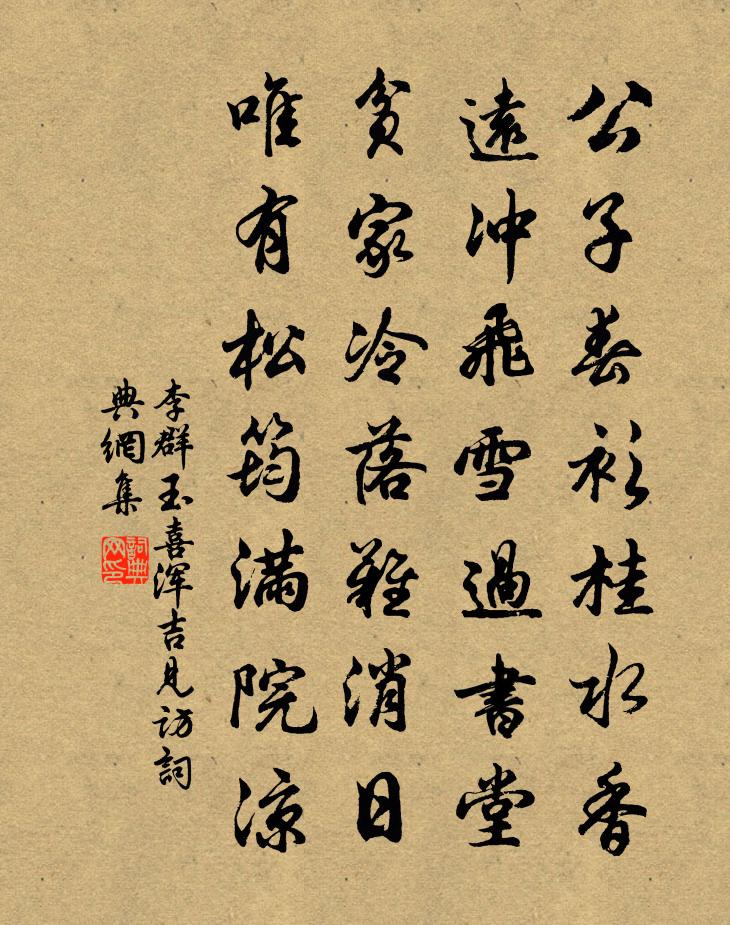 公子春衫桂水香
遠冲飛雪過書堂
貧家冷落難消日
唯有松筠滿院凉
李群玉喜渾吉見訪詞
典網集
詞典
网印